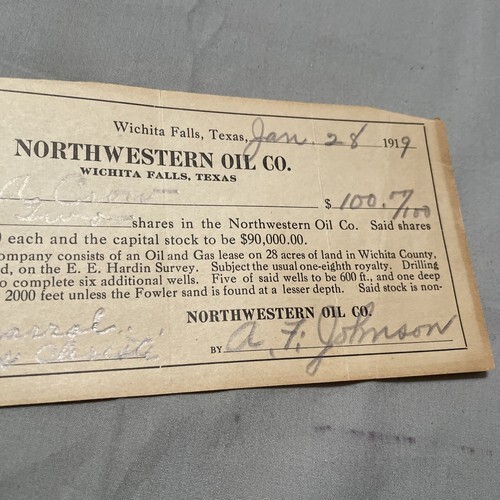 Wichita Falls, Texas, Jan. 28 1919
NORTHWESTERN OIL CO.
WICHITA FALLS, TEXAS
$ 100.
shares in the Northwestern Oil Co. Said shares
0 each and the capital stock to be $90,000.00.
ompany consists of an Oil and Gas lease on 28 acres of land in Wichita County,
d, on the E. E. Hardin Survey. Subject the usual one-eighth royalty. Drilling
o complete six additional wells. Five of said wells to be 600 ft., and one deep
2000 feet unless the Fowler sand is found at a lesser depth. Said stock is non-
NORTHWESTERN OIL CO.
BY A. F. Johnson